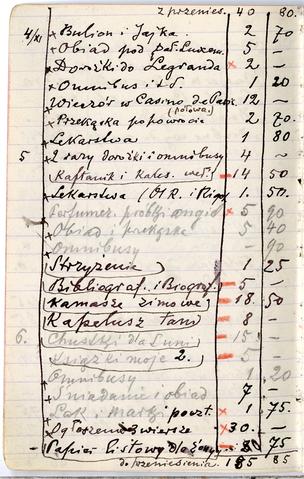 z przenies. 40 80.
4/XI Bulion i Jajka. 2 70
Obiad pod pał. Luxem. 5 -
Dorożki do Legranda 2 -
Omnibus i t.d. 1 20
Wieczór w Casino de Paris 12 -
(połowa)
Przekąska po powrocie 2 70.
Lekarstwa 1 80
5 2 razy dorożki i omnibusy 4 -
Kaftanik i Kales. 14 50
Lekarstwa 1. 50.
Perfumer. 5 90
Obiad i przekąska 5 40
Omnibusy - 90
Strzyżenie 1 25
Bibliograf. i Biograf. 5 -
Kamasze zimowe 18. 50
Kapelusz tani 8 -
6. Chustki dla Luni 15. -
Książki moje 2. 5 -
Omnibusy 1. 20
Śniadanie i obiad 7
i marki poczt. 1 75.
Ogłoszenie 30. -
Papier listowy dla 75
do przeniesienia. 185 85